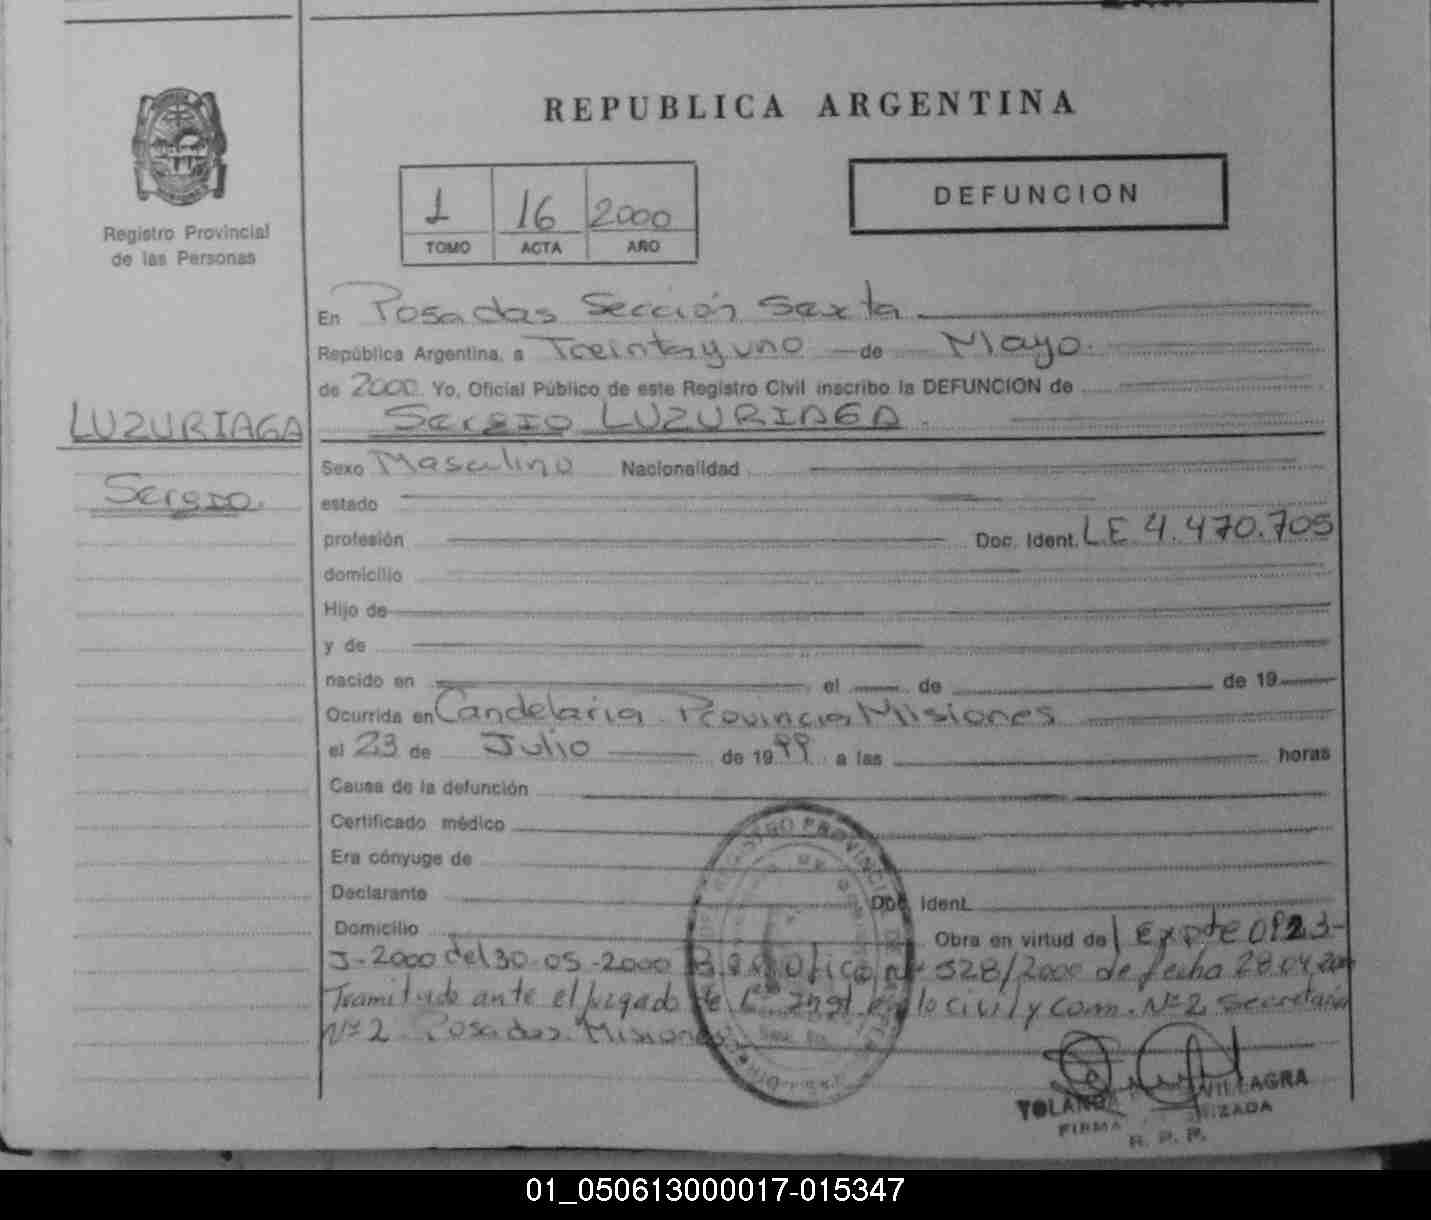 REPUBLICA ARGENTINA
Registro Provincial
de las Personas
1 16 2000
TOMO ACTA AÑO
DEFUNCION
En Posadas Sección Sexta
República Argentina, a Treinta y uno de Mayo.
de 2000. Yo, Oficial Público de este Registro Civil inscribo la DEFUNCION de
LUZURIAGA
Sergio.
Sergio LUZURIAGA.
Sexo Masculino Nacionalidad
estado
profesión Doc. Ident. L.E 4.470.705
domicilio
Hijo de
y de
nacido en el de de 19
Ocurrida en Candelaria Provincia Misiones
el 23 de Julio de 1999 a las horas
Causa de la defunción
Certificado médico
Era cónyuge de
Declarante Doc. Ident.
Domicilio Obra en virtud del Expte
J-2000 del 30-05-2000 Oficio nº 528/2000 de fecha 28.04.2000
Tramitado ante el Juzgado de 1º Inst. en lo civil y com. Nº 2 Secretaria
Nº 2 Posadas Misiones
REGISTRO PROVINCIAL DE
YOLANDA VILLAGRA
FIRMA
R. P. P.
01_050613000017-015347